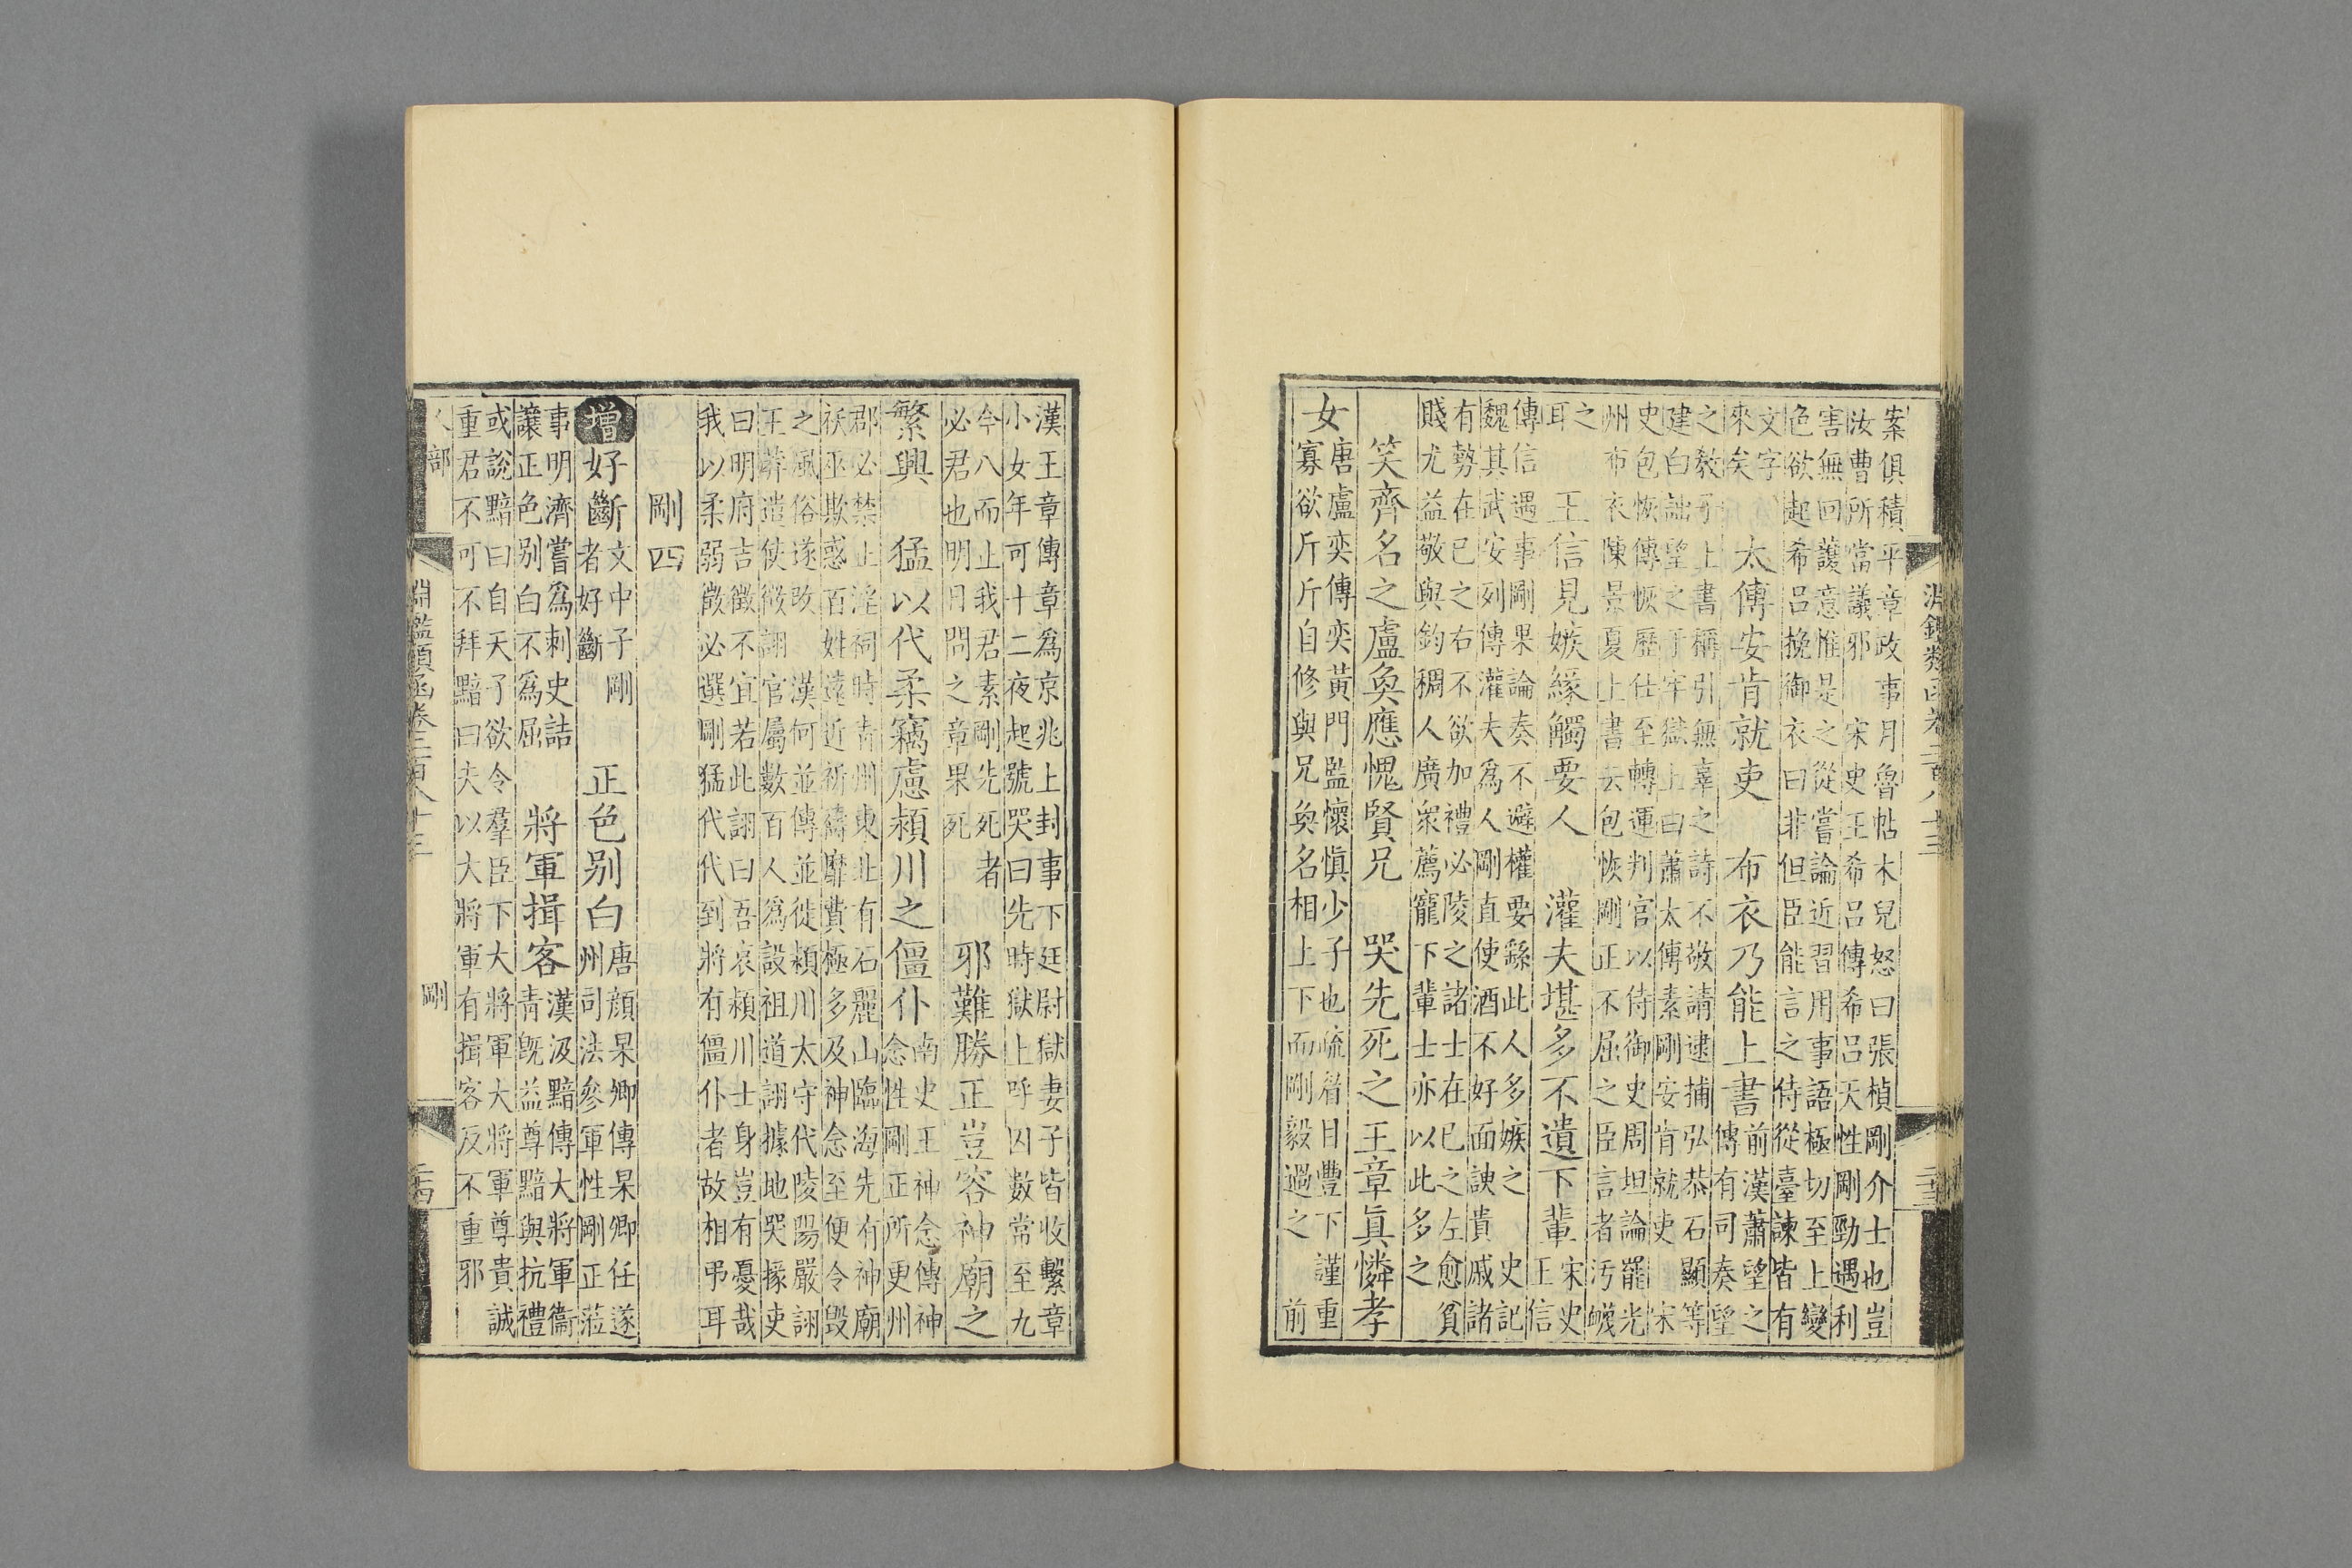 淵鑑類函卷二百八十三
二十三
案俱積平章政事月魯帖木兒怒曰張楨剛介士也豈
汝曹所當議邪 宋史王希呂傳希呂天性剛勁遇利
害無回護意惟是之從嘗論近習用事語極切至上變
色欲起希呂挽御衣曰非但臣能言之侍從臺諫皆有
文字
來矣
太傅安肯就吏 布衣乃能上書
前漢蕭望之
傳有司奏望
之敎子上書稱引無辜之詩不敬請逮捕弘恭石顯等
建白詘望之于牢獄上曰蕭太傅素剛安肯就吏 宋
史包恢傳恢歷仕至轉運判官以侍御史周坦論罷光
州布衣陳景夏上書云包恢剛正不屈之臣言者汚衊
之
耳
王信見嫉緣觸要人 灌夫堪多不遺下輩
宋史
王信
傳信遇事剛果論奏不避權要繇此人多嫉之 史記
魏其武安列傳灌夫爲人剛直使酒不好面諛貴戚諸
有勢在己之右不欲加禮必陵之諸士在己之左愈貧
賤尤益敬與鈞稠人廣衆薦寵下輩士亦以此多之
笑齊名之盧奐應愧賢兄 哭先死之王章眞憐孝
女
唐盧奕傳奕黃門監懷愼少子也疏眉目豐下謹重
寡欲斤斤自修與兄奐名相上下而剛毅過之 前
漢王章傳章爲京兆上封事下廷尉獄妻子皆收繫章
小女年可十二夜起號哭曰先時獄上呼囚數常至九
今八而止我君素剛先死者
必君也明日問之章果死
邪難勝正豈容神廟之
繁興 猛以代柔竊慮潁川之僵仆
南史王神念傳神
念性剛正所更州
郡必禁止淫祠時靑州東北有石麗山臨海先有神廟
祅巫欺惑百姓遠近祈禱靡費極多及神念至便令毀
之風俗遂改 漢何並傳並徙潁川太守代陵陽嚴詡
王莽遣使徵詡官屬數百人爲設祖道詡據地哭掾吏
曰明府吉徵不宜若此詡曰吾哀潁川士身豈有憂哉
我以柔弱徵必選剛猛代代到將有僵仆者故相弔耳
剛四
增
好斷
文中子剛
者好斷
正色别白
唐顔杲卿傳杲卿任遂
州司法參軍性剛正蒞
事明濟嘗爲刺史詰
讓正色别白不爲屈
將軍揖客
漢汲黯傳大將軍衞
靑既益尊黯與抗禮
或說黯曰自天子欲令羣臣下大將軍大將軍尊貴誠
重君不可不拜黯曰夫以大將軍有揖客反不重邪
人部
淵鑑類函卷二百八十三
剛
二十四